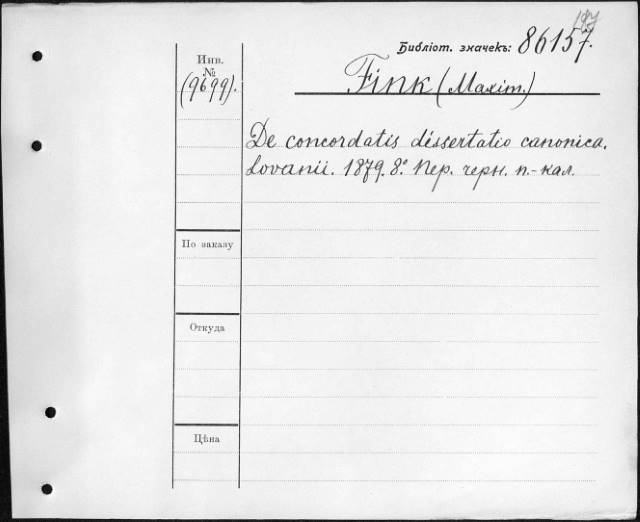 Библіот. значекъ: 86157.
Инв.
№
(9699).
Fink (Maxim.)
De concordatis dissertatio canonica.
Lovanii. 1879. 8° Пер. черн. п.-кал.
По заказу
Откуда
Цѣна